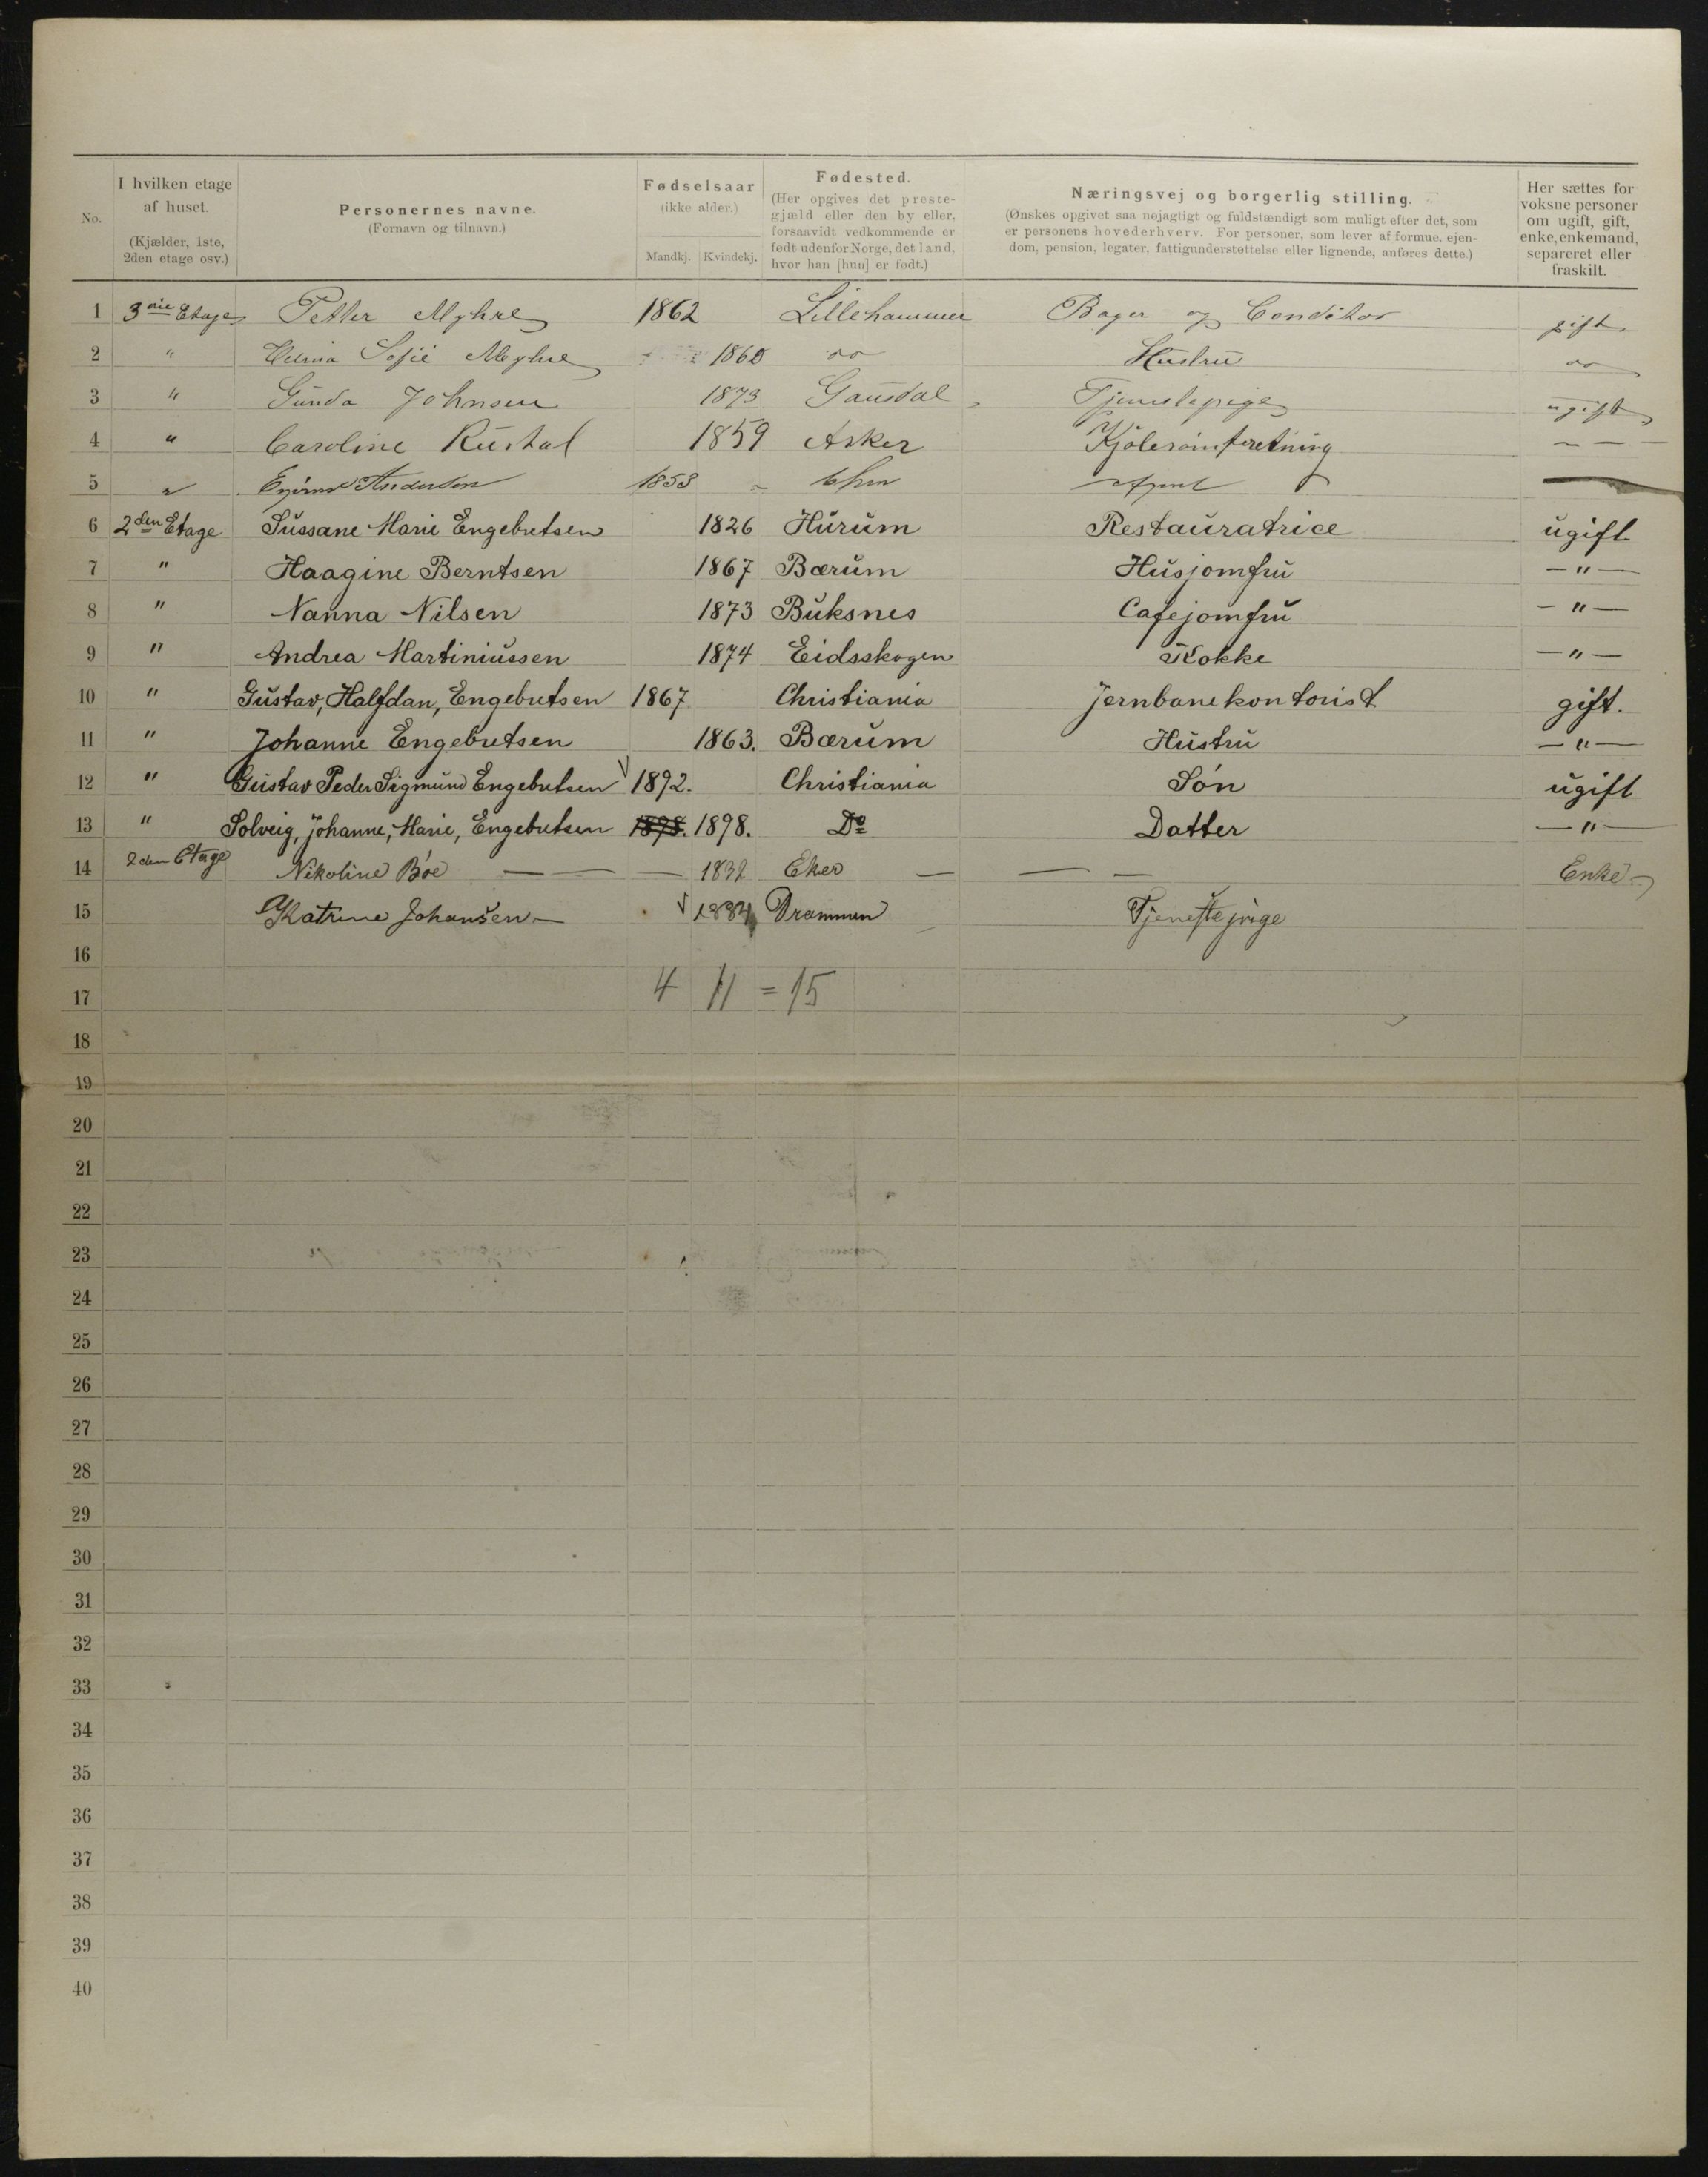 No.
I hvilken etage af huset.
(Kjælder, 1ste, 2den etage osv.)
Personernes navne.
(Fornavn og tilnavn.)
Fødselsaar
(ikke alder.)
Mandkj. Kvindekj.
Fødested.
(Her opgives det prestegjæld eller den by eller, forsaavidt vedkommende er født udenfor Norge, det land, hvor han [hun] er født.)
Næringsvej og borgerlig stilling.
(Ønskes opgivet saa nøjagtigt og fuldstændigt som muligt efter det, som er personens hovederhverv. For personer, som lever af formue, ejendom, pension, legater, fattigunderstøttelse eller lignende, anføres dette.)
Her sættes for voksne personer om ugift, gift, enke, enkemand, separeret eller fraskilt.
1 3die Etage Petter Myhre 1862 Lillehammer Bager og Conditor gift
2 " Sofie Myhre 1860 do Hustru do
3 " Gunda Johnsen 1873 Gausdal Tjenestepige ugift
4 " Caroline Rustad 1859 Asker Kjolesømforretning — — —
5 " Andersen 1853 Chra Agent
6 2den Etage Sussane Marie Engebretsen 1826 Hurum Restauratrice ugift
7 " Haagine Berntsen 1867 Bærum Husjomfru — " —
8 " Nanna Nilsen 1873 Buksnes Cafejomfru — " —
9 " Andrea Martiniussen 1874 Eidsskogen Kokke — " —
10 " Gustav, Halfdan, Engebretsen 1867 Christiania Jernbanekontorist gift.
11 " Johanne Engebretsen 1863. Bærum Hustru — " —
12 " Gustav Peder Sigmund Engebretsen 1892. Christiania Søn ugift
13 " Solveig, Johanne, Marie, Engebretsen 1898. 1898. Do Datter — " —
14 2den Etage Nikoline Bøe — — — 1832 Eker — — — Enke
15 Katrine Johansen — 1884 Drammen Tjenestepige
16
17 4 11 = 15
18
19
20
21
22
23
24
25
26
27
28
29
30
31
32
33
34
35
36
37
38
39
40